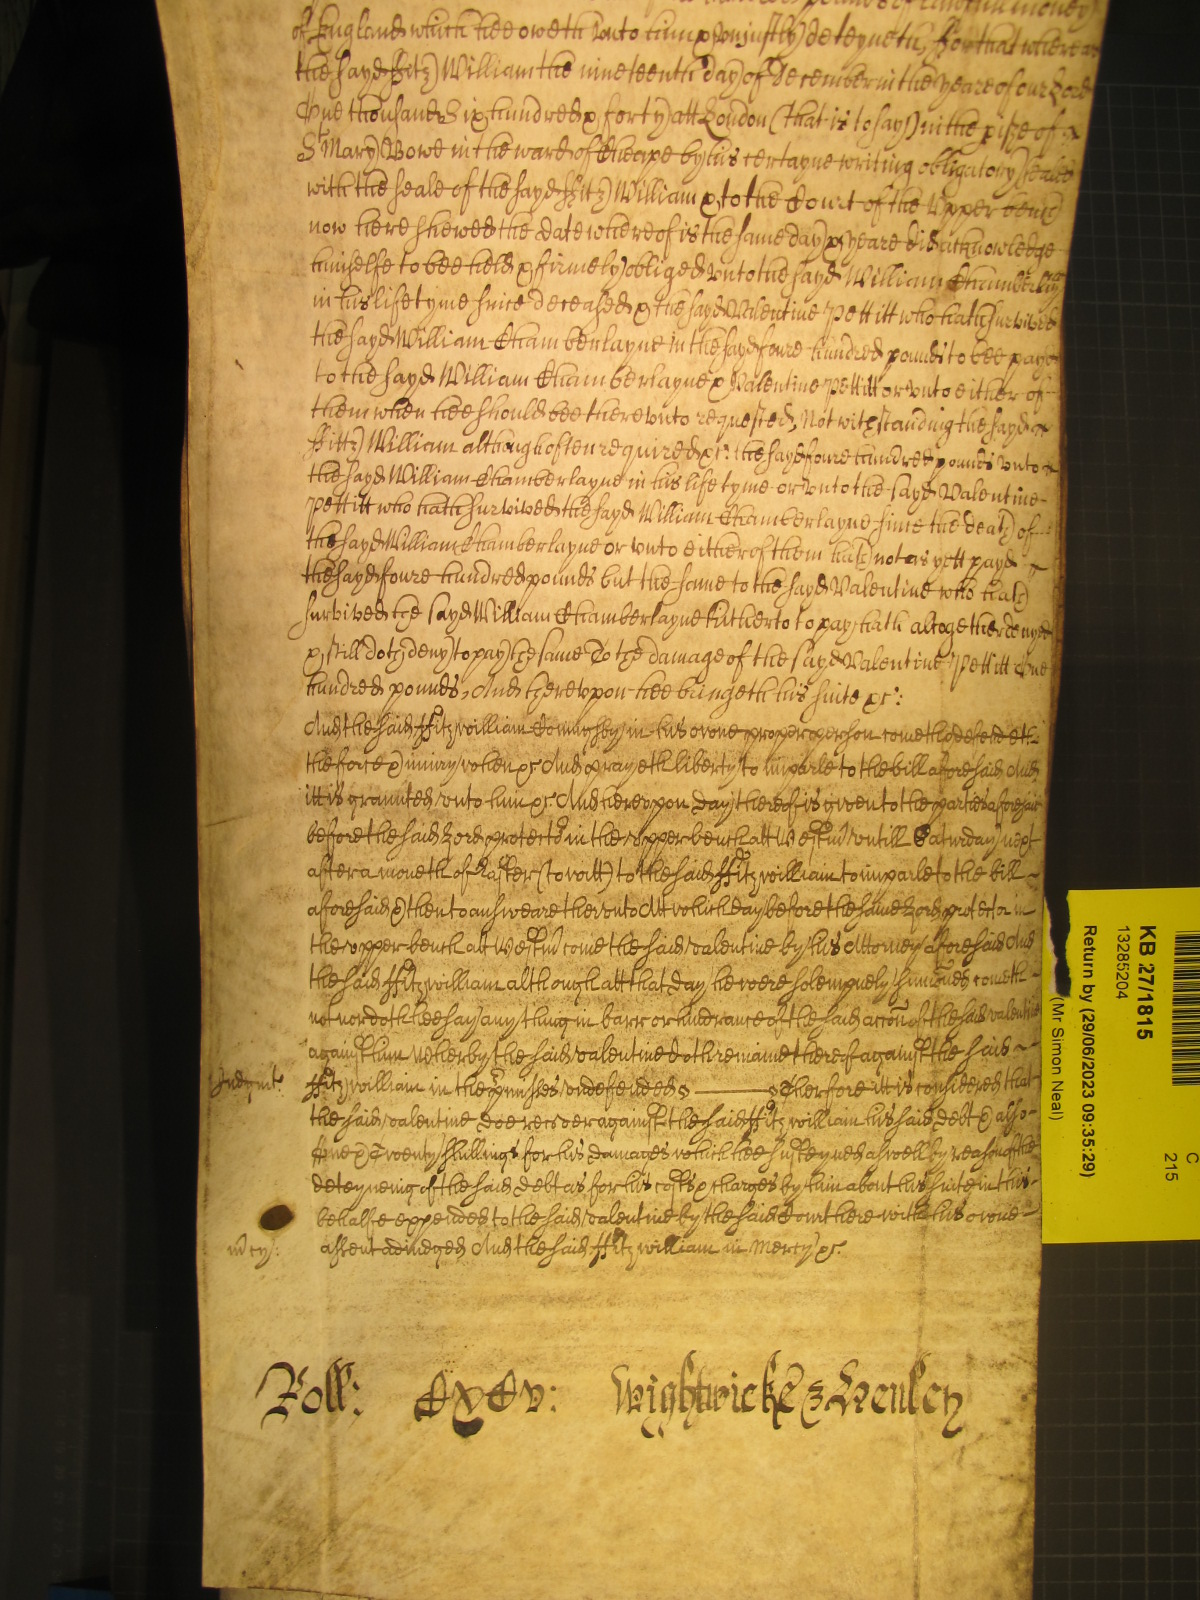 of England which hee oweth unto him & unjustly deteyneth, For that whereas
the sayd Fitz William the nineteenth day of December in the yeare of our Lord
One thousand Six hundred & forty att London (that is to say) in the pish of
St Mary Bowe in the ward of Cheape by his certayne writing obligatory sealed
with the seale of the sayd Fitz William & to the Court of the Upper bench
now here shewed the date whereof is the same day & yeare did acknowledge
himselfe to bee held & firmely obliged unto the sayd William Chamberlayne
in his life tyme since deceased & the sayd Valentine Pettitt who hath survived
the sayd William Chamberlayne in the sayd foure hundred pounds to bee payd
to the sayd William Chamberlayne & Valentine Pettitt or unto either of
them when hee should bee thereunto requested, Notwithstanding the sayd
Fittz William although often required &c: the sayd foure hundred pounds unto
the sayd William Chamberlayne in his life tyme or unto the sayd Valentine
Pettitt who hath survived the sayd William Chamberlayne since the death of
the sayd William Chamberlayne or unto either of them hath not as yett payd
the sayd foure hundred pounds but the same to the sayd Valentine who hath
survived the sayd William Chamberlayne hitherto to pay hath altogether denyed
& still doth deny to pay the same To the damage of the sayd Valentine Pettitt One
hundred pounds, And thereuppon hee bringeth his suite &c:
And the said Fitzwilliam in his owne proper person cometh & defendeth
the force & injury when &c And prayeth liberty to imparle to the bill aforesaid And
itt is graunted unto him &c And hereupon day thereof is given to the parties aforesaid
before the said Lord Protector in the upper bench att Westm untill Saturday next
after a moneth of Easter (to witt) to the said Fitzwilliam to imparle to the bill
aforesaid & then to answeare therunto Att which day before the same Lord protector in
the upper bench att Westm come the said Valentine by his Attorney aforesaid And
the said Fitzwilliam although att that day he were solempnely sumoned cometh
not nor doth hee say any thing in barr or hindrance of the said accon of the said Valentine
against him Wherby the said Valentine doth remaine thereof against the said
Judgmt Fitzwilliam in the pmisses undefended Therfore itt is considered that
the said Valentine doe recover against the said Fitzwilliam his said debt & also
One & Twenty shillings for his damages which hee susteyned aswell by reason of the
deteyneing of the said debt as for his costs & charges by him about his suite in this
behalfe expended to the said Valentine by the said Court here with his owne
mcy: assent adjudged And the said Fitzwilliam in Mercy &c.
Roll: CxCv: Wightwicke & Henley
KB 27/1815
13285204
Return by (29/06/2023 09:35:29)
(Mr Simon Neal)
C
215